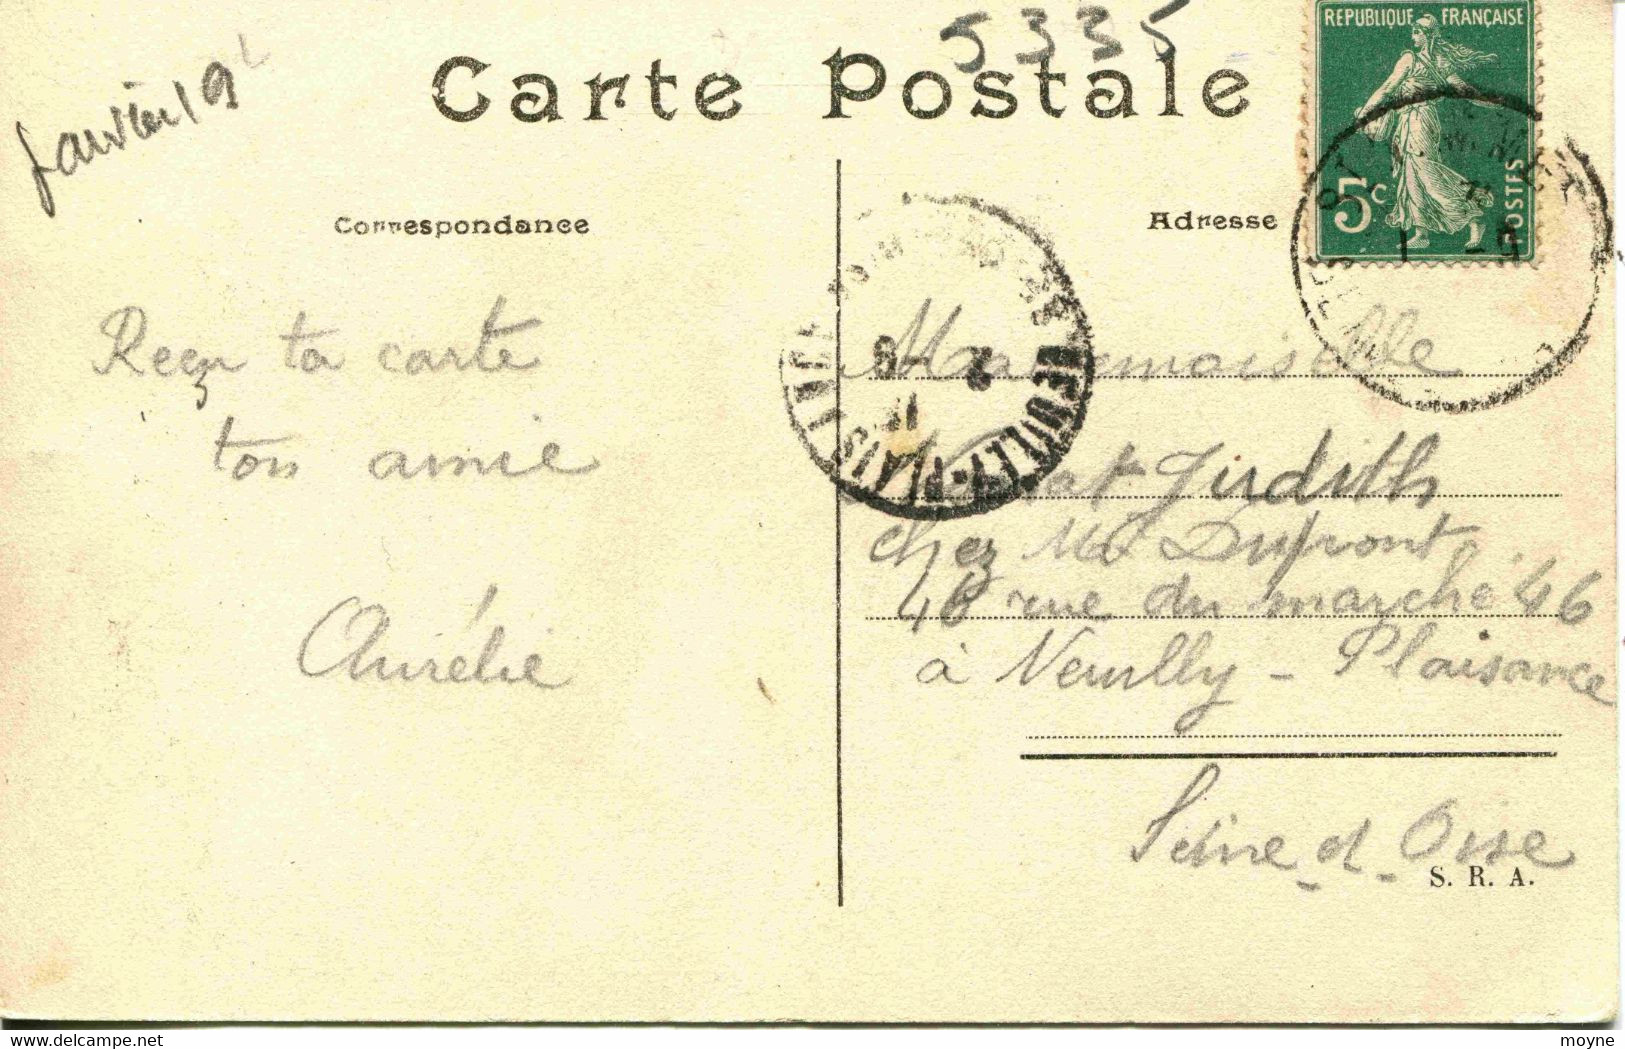 janvier 19
5335
Carte Postale
REPUBLIQUE FRANÇAISE
5c
POSTES
Correspondance
Adresse
Reçu ta carte
ton amie
Aurélie
NEUILLY-PLAISANCE
2 -9
11
1 -9
Mademoiselle
Judith
chez Md Dupont
46 rue du marché 46
à Neuilly - Plaisance
Seine-et-Oise
S. R. A.
moyne